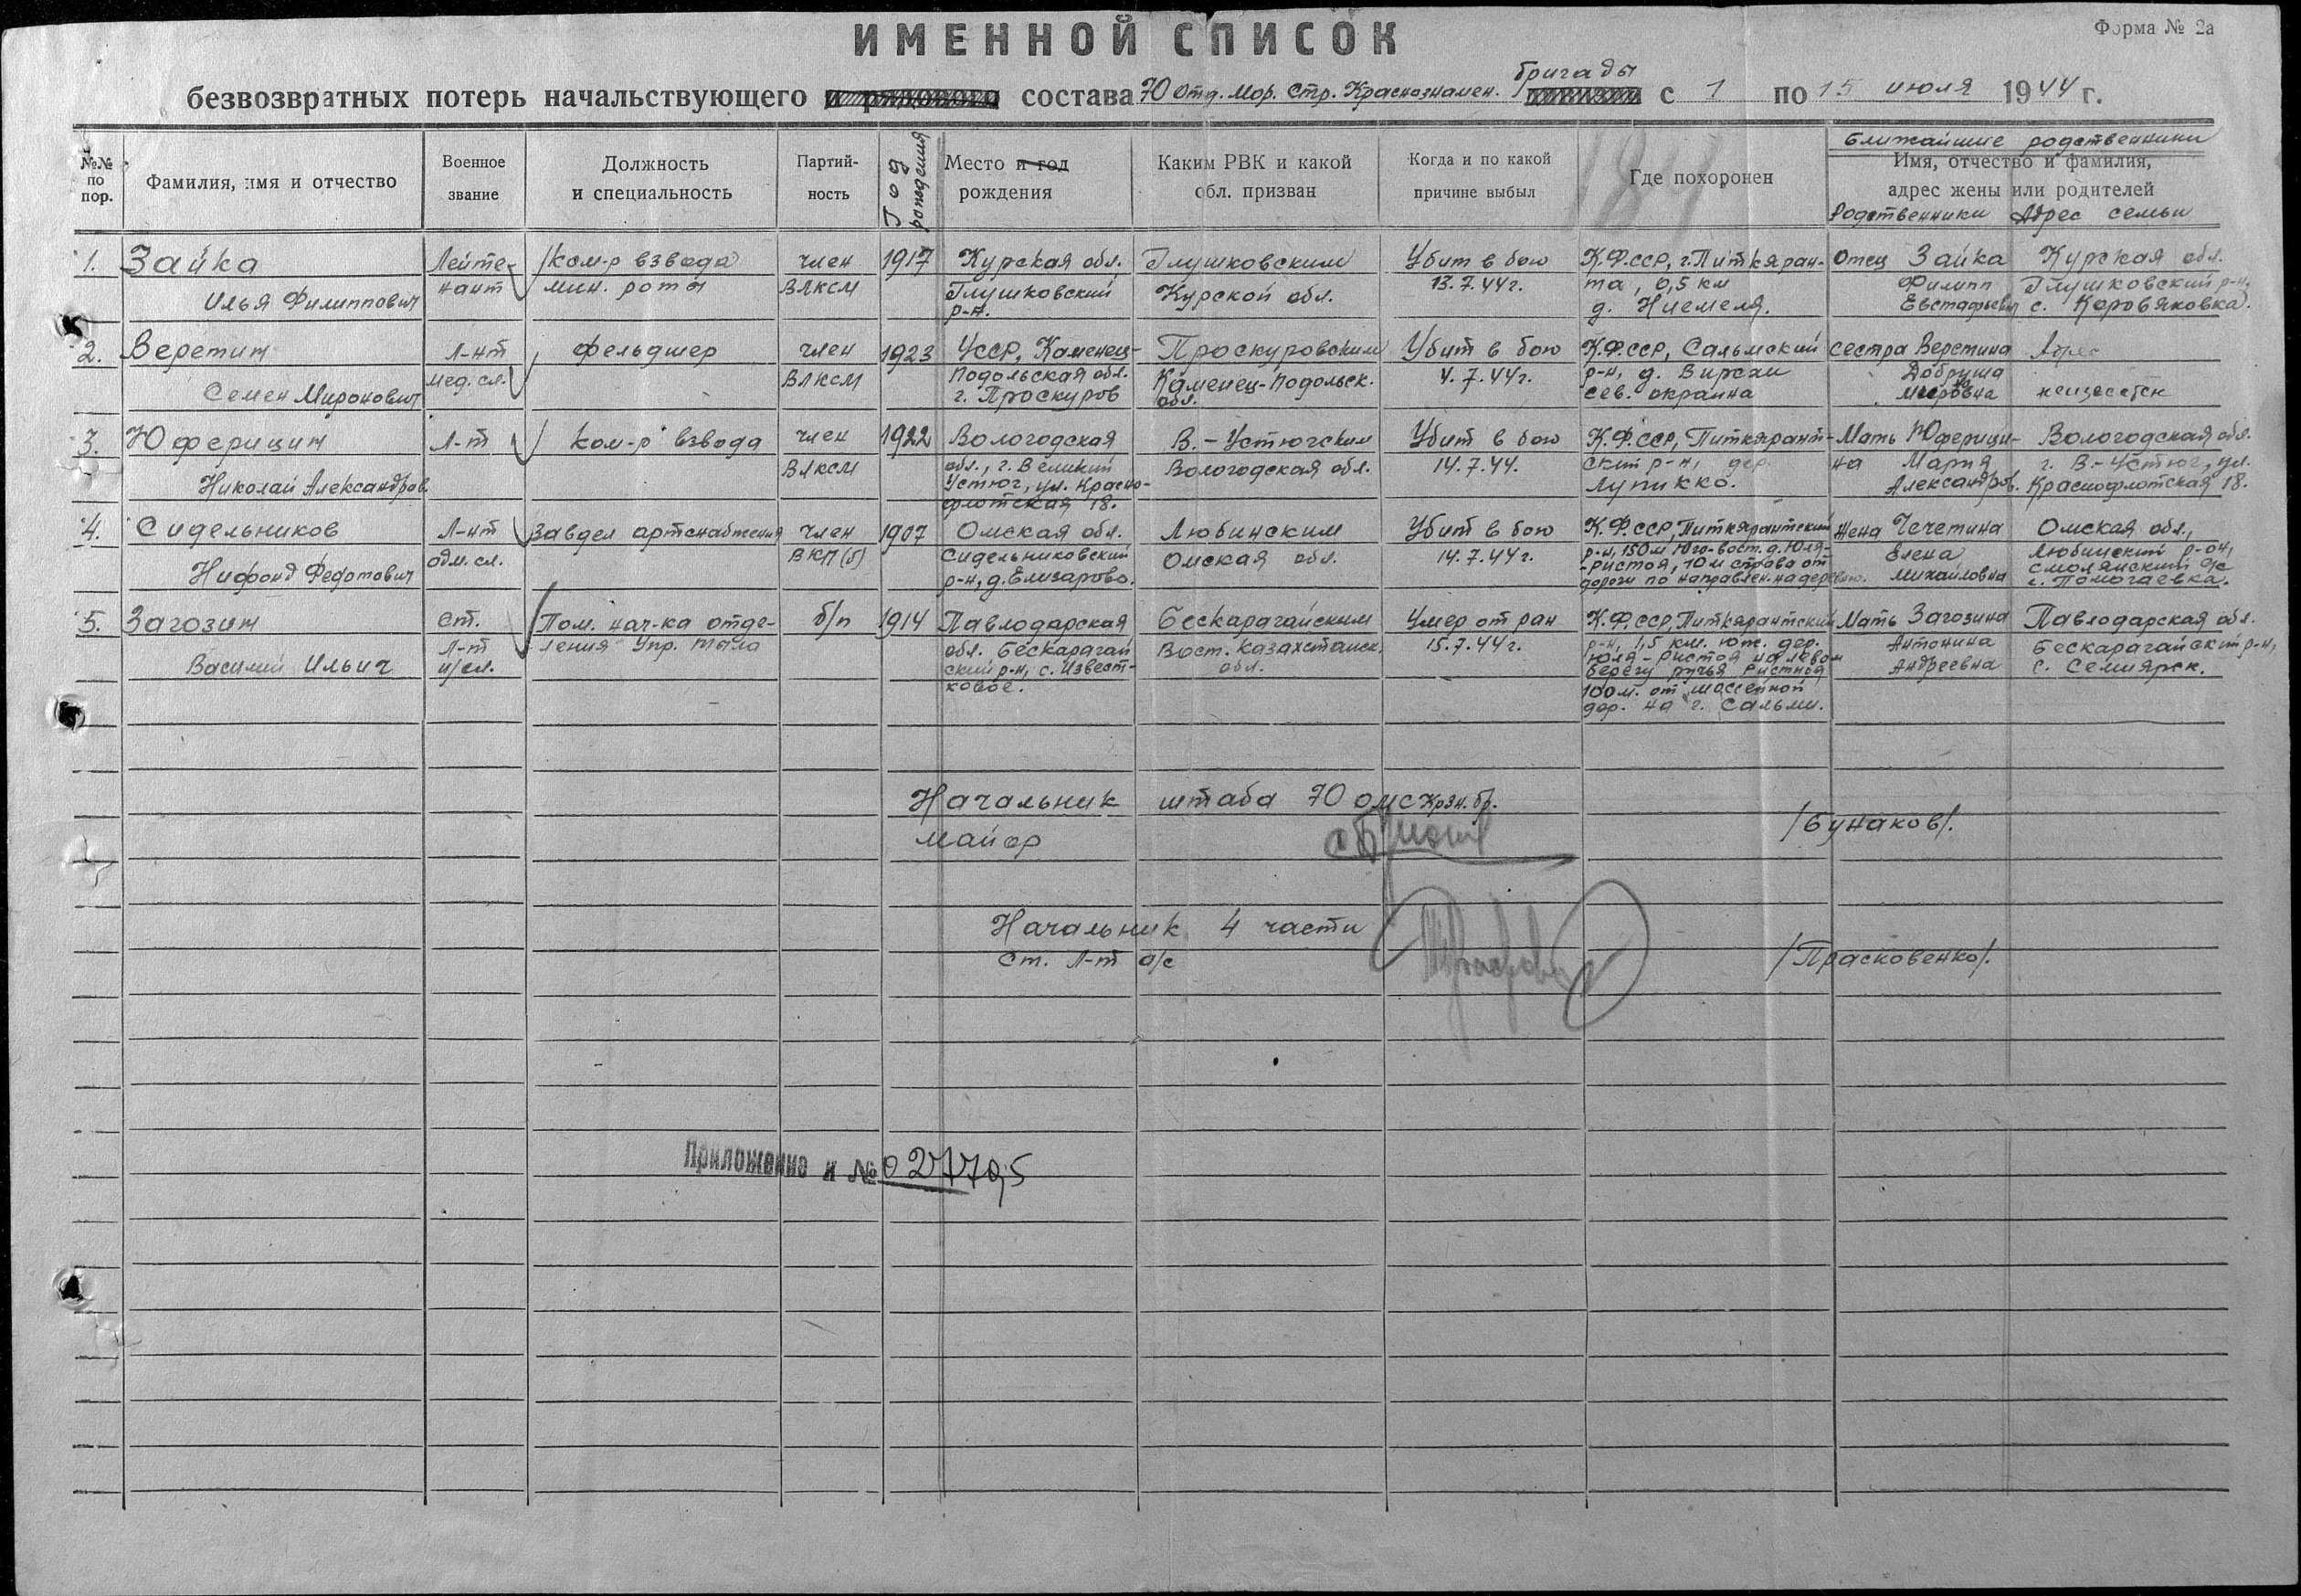 Форма № 2а
ИМЕННОЙ СПИСОК
бригады
безвозвратных потерь начальствующего и рядового состава 70 отд. Мор. Стр. Краснознамен. дивизии с 1 по 15 июля 1944 г.
№№ по пор.
Фамилия, имя и отчество
Военное звание
Должность и специальность
Партий-ность
Год рождения
Место и год рождения
Каким РВК и какой обл. призван
Когда и по какой причине выбыл
Где похоронен
Ближайшие родственники
Имя, отчество и фамилия,
адрес жены или родителей
Родственники Адрес семьи
1. Зайка Лейте- ком-р взвода член 1917 Курская обл. Глушковским Убит в бою К.Ф.ССР, г. Питкяран- Отец Зайка Курская обл.
Илья Филиппович нант мин. роты ВЛКСМ Глушковский Курской обл. 13.7.44г. та, 0,5 км Филипп Глушковский р-н,
р-н. д. Ниемеля. Евстафьевич с. Коровяковка.
2. Веретин Л-нт фельдшер член 1923 УССР, Каменец- Проскуровским Убит в бою К.Ф.ССР, Сальмский сестра Веретина Адрес
Семен Миронович мед. сл. ВЛКСМ Подольская обл. Каменец-Подольск. 4.7.44г. р-н, д. Вирсхи Добруша
г. Проскуров обл. сев. окраина Мировна неизвестен
3. Юферицин Л-т ком-р взвода член 1922 Вологодская В.-Устюгским Убит в бою К.Ф.ССР, Питкярант- Мать Юферици- Вологодская обл.
ВЛКСМ обл., г. Великий Вологодская обл. 14.7.44. ский р-н, дер. на Мария г. В.-Устюг, ул.
Николай Александров. Устюг, ул. Красно- Лупикко. Александров. Краснофлотская 18.
флотская 18.
4. Сидельников Л-нт Завдел артснабжения член 1907 Омская обл. Любинским Убит в бою К.Ф.ССР, Питкярантский Жена Чечетина Омская обл.,
адм. сл. ВКП(б) Сидельниковский Омская обл. 14.7.44г. р-н, 150м юго-вост. д. Юля- Елена Любинский р-он,
Нифонд Федотович р-н, д. Елизарово. -ристоя, 10м справа от Смолянский с/с
дороги по направлен. на деревню. Михайловна с. Помогаевка.
5. Загозин ст. Пом. нач-ка отде- б/п 1914 Павлодарская Бескарагайским Умер от ран К.Ф.ССР, Питкярантский Мать Загозина Павлодарская обл.
Л-т ления Упр. тыла обл. Бескарагай Вост. Казахстанск. 15.7.44г. р-н, 1,5 км. юж. дер. Антонина Бескарагайский р-н,
Василий Ильич и/сл. ский р-н, с. Извест- обл. Юля-Ристоя на левом Андреевна с. Семиярск.
ковое. берегу ручья Ристноя
100м. от шоссейной
дор. на г. Сальми.
Начальник штаба 70 омс Крзн. бр.
майор /Бунаков/.
Начальник 4 части
Ст. Л-т а/с /Прасковенко/.
Приложение к № 027705